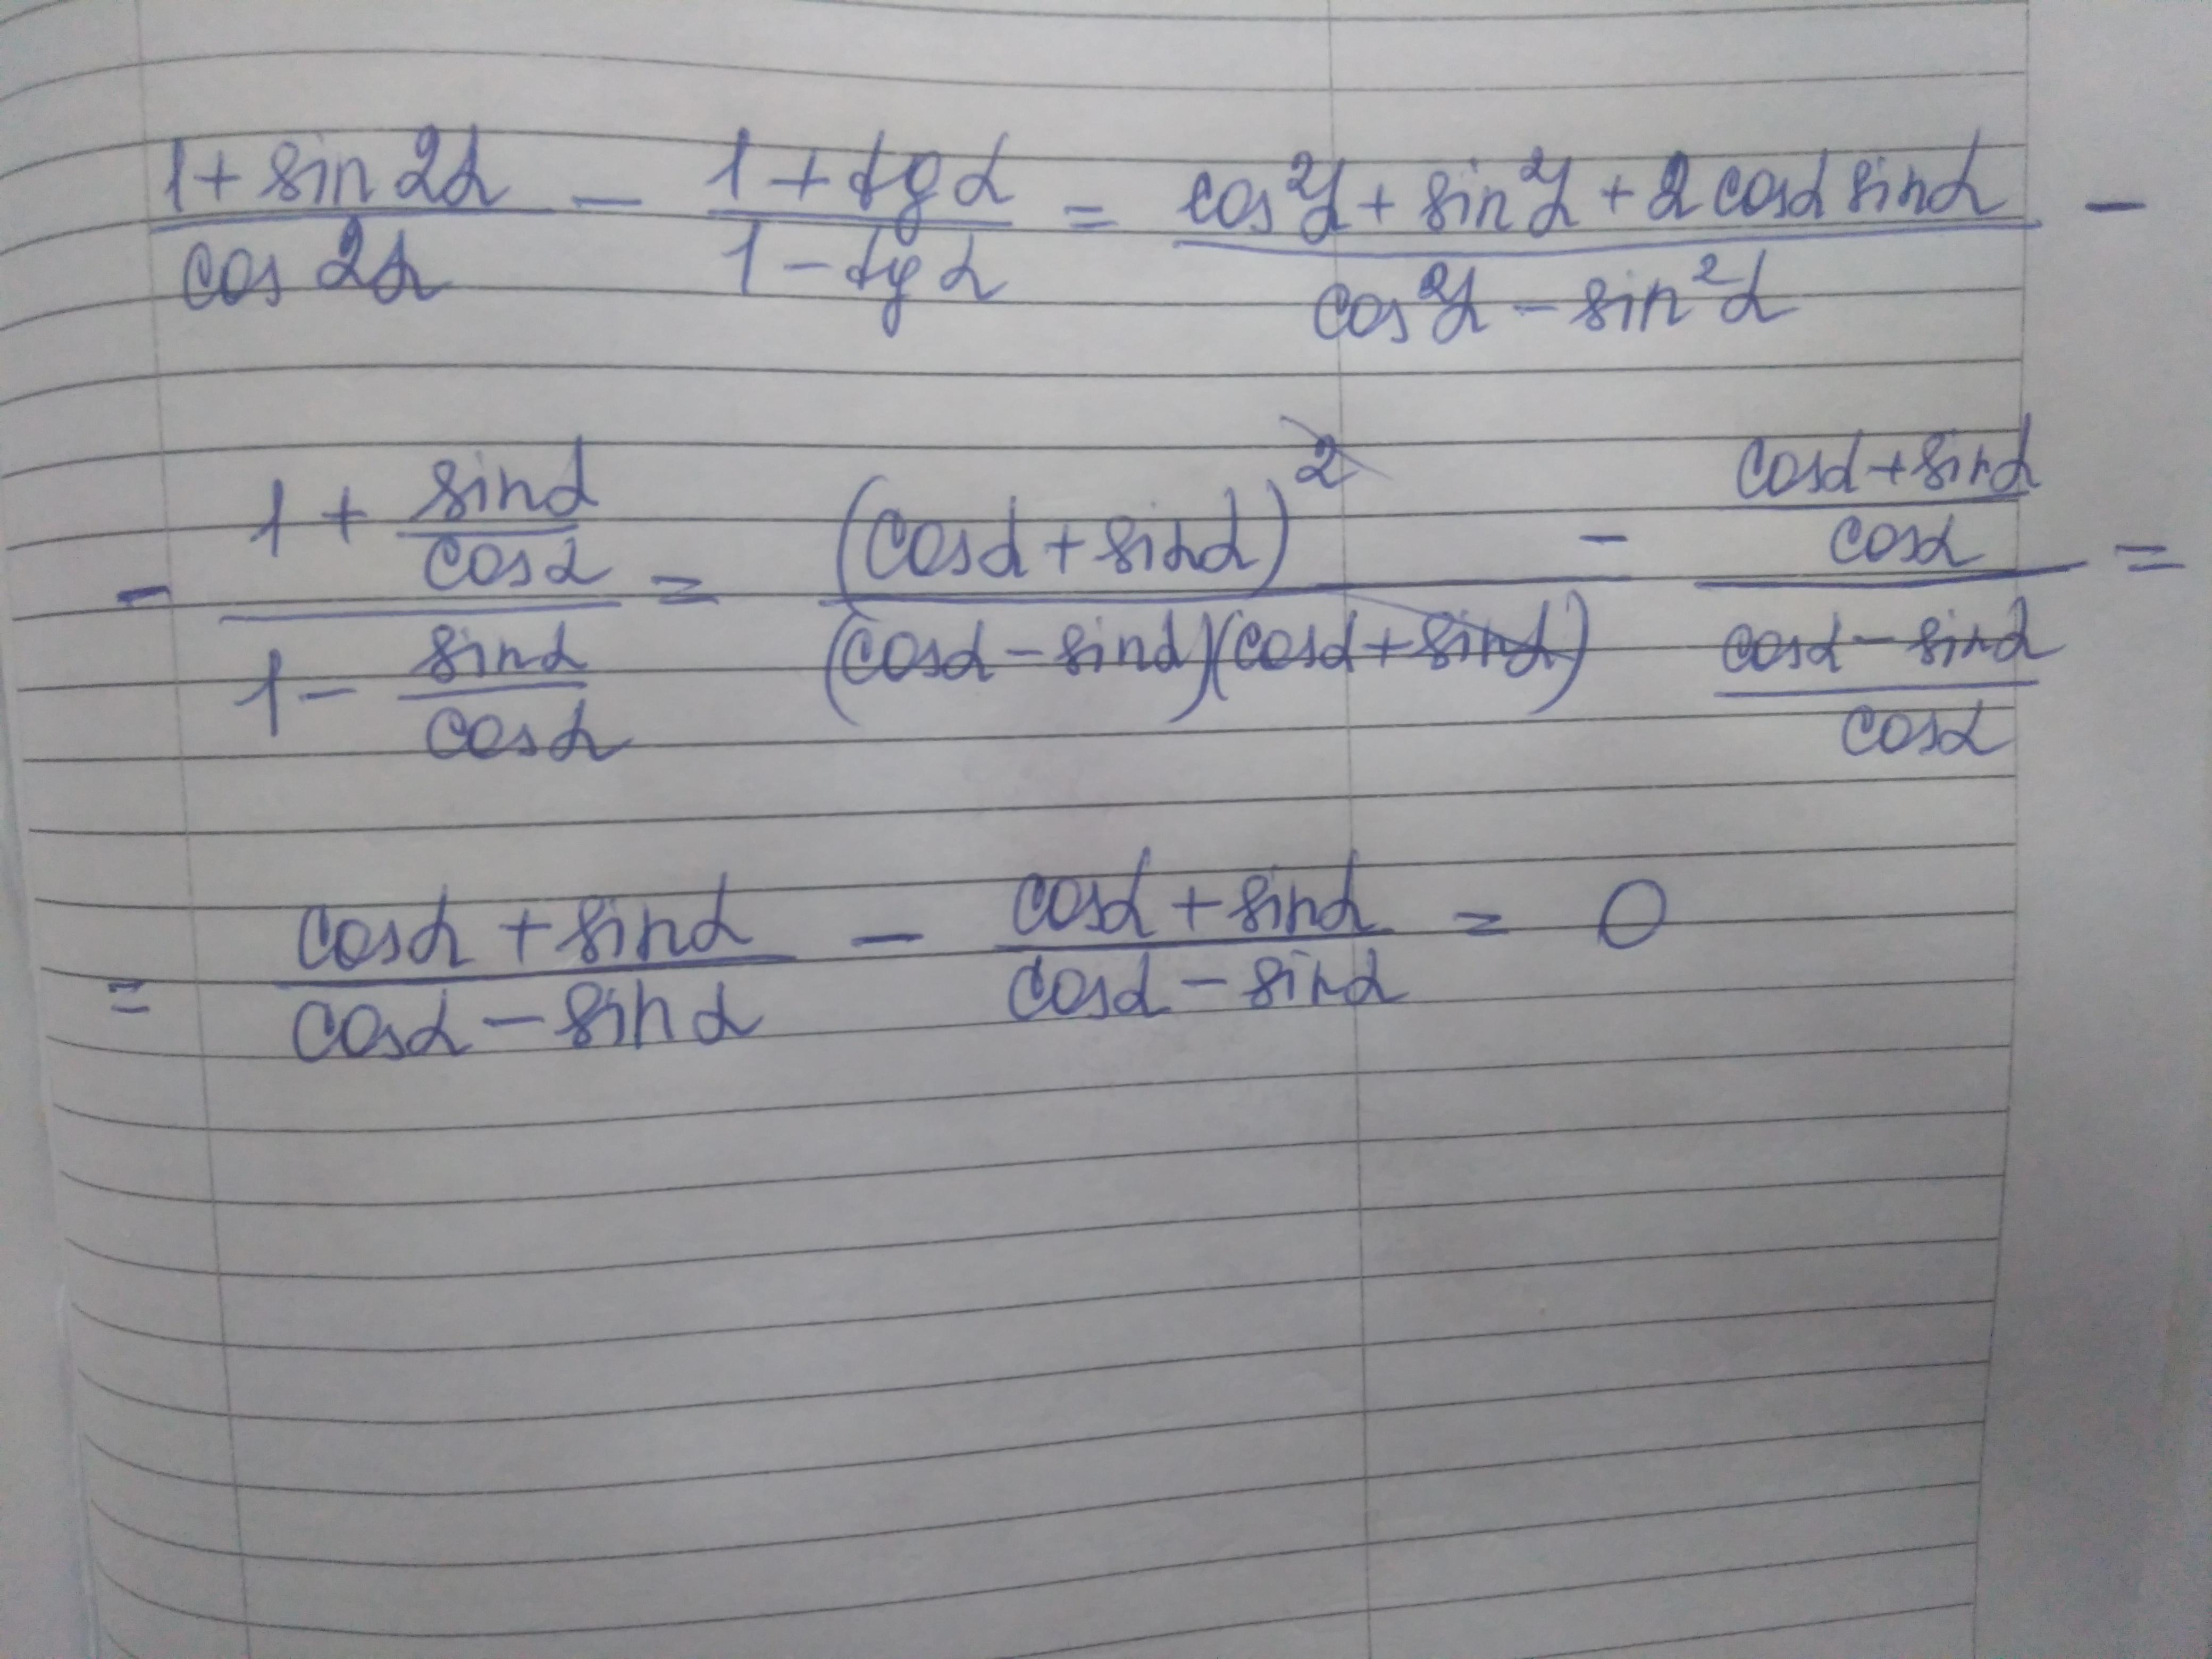 (1 + sin 2α)/(cos 2α) − (1 + tg α)/(1 − tg α) = (cos²α + sin²α + 2 cosα sinα)/(cos²α − sin²α) −
− (1 + sinα/cosα)/(1 − sinα/cosα) = (cosα + sinα)²/((cosα − sinα)(cosα + sinα)) − ((cosα + sinα)/cosα)/((cosα − sinα)/cosα) =
= (cosα + sinα)/(cosα − sinα) − (cosα + sinα)/(cosα − sinα) = 0